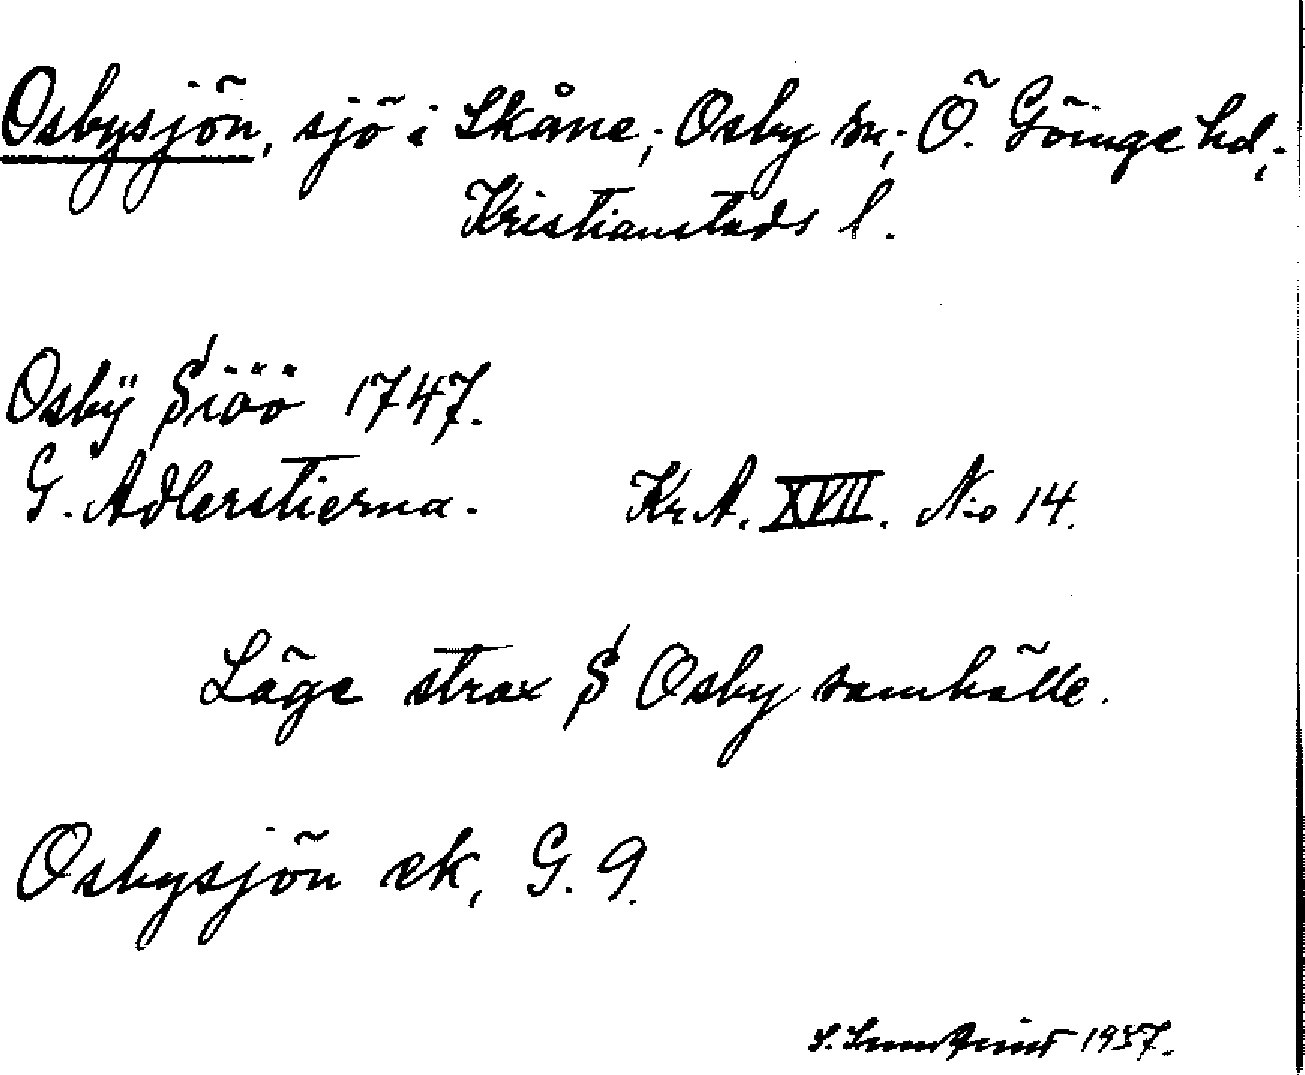 Osbysjön, sjö i Skåne; Osby sn; Ö. Göinge hd;
Kristianstads l.
Osbÿ Siöö 1747.
G. Adlerstierna. Kr.A. XVII. N:o 14.
Läge strax S Osby samhälle.
Osbysjön ek, G. 9.
S. 1937.